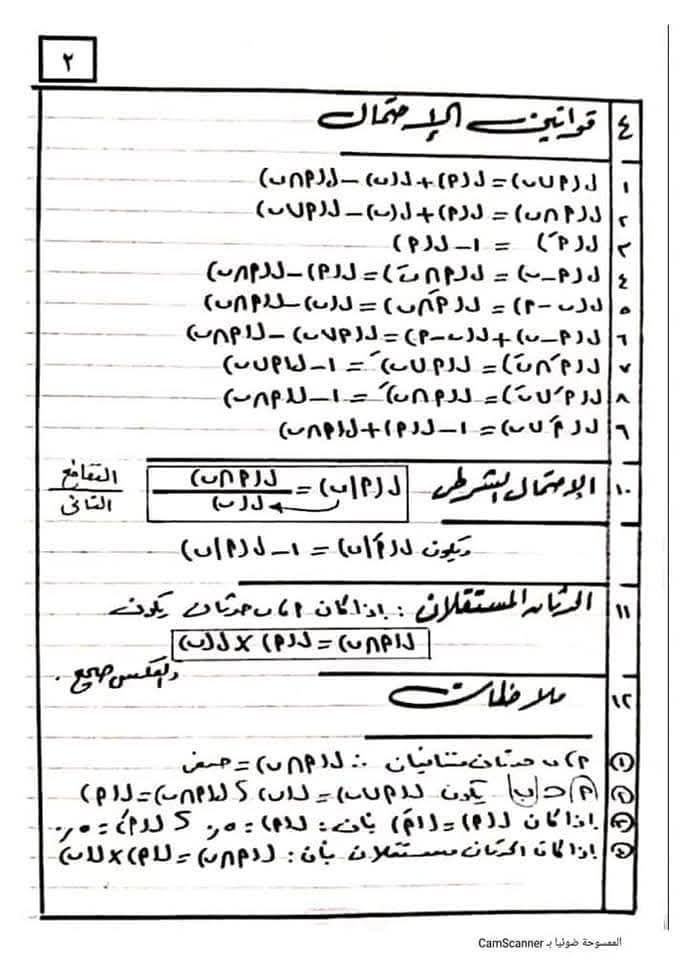 ٢
٤ قوانين الاحتمال
١ ل(P∪ب) = ل(P) + ل(ب) - ل(P∩ب)
٢ ل(P∩ب) = ل(P) + ل(ب) - ل(P∪ب)
٣ ل(Ṕ) = ١ - ل(P)
٤ ل(P-ب) = ل(P∩ب́) = ل(P) - ل(P∩ب)
٥ ل(ب-P) = ل(Ṕ∩ب) = ل(ب) - ل(P∩ب)
٦ ل(P-ب) + ل(ب-P) = ل(P∪ب) - ل(P∩ب)
٧ ل(Ṕ∩ب́) = ل(P∪ب)́ = ١ - ل(P∪ب)
٨ ل(Ṕ∪ب́) = ل(P∩ب)́ = ١ - ل(P∩ب)
٩ ل(Ṕ∪ب) = ١ - ل(P) + ل(P∩ب)
١٠ الاحتمال الشرطى ل(P|ب) = ل(P∩ب) / ل(ب) التقاطع / الثانى
ويكون ل(Ṕ|ب) = ١ - ل(P|ب)
١١ الحدثان المستقلان : إذا كان P ، ب حدثان يكون
ل(P∩ب) = ل(P) × ل(ب)
والعكس صحيح .
١٢ ملاحظات
① P ، ب حدثان متنافيان ∴ ل(P∩ب) = صفر
② P ⊂ ب يكون ل(P∪ب) = ل(ب) ، ل(P∩ب) = ل(P)
③ إذا كان ل(P) = ل(Ṕ) فإن : ل(P) = ٠٫٥ ، ل(Ṕ) = ٠٫٥
④ إذا كان الحدثان مستقلان فإن : ل(P∩ب) = ل(P) × ل(ب)
الممسوحة ضوئيا بـ CamScanner